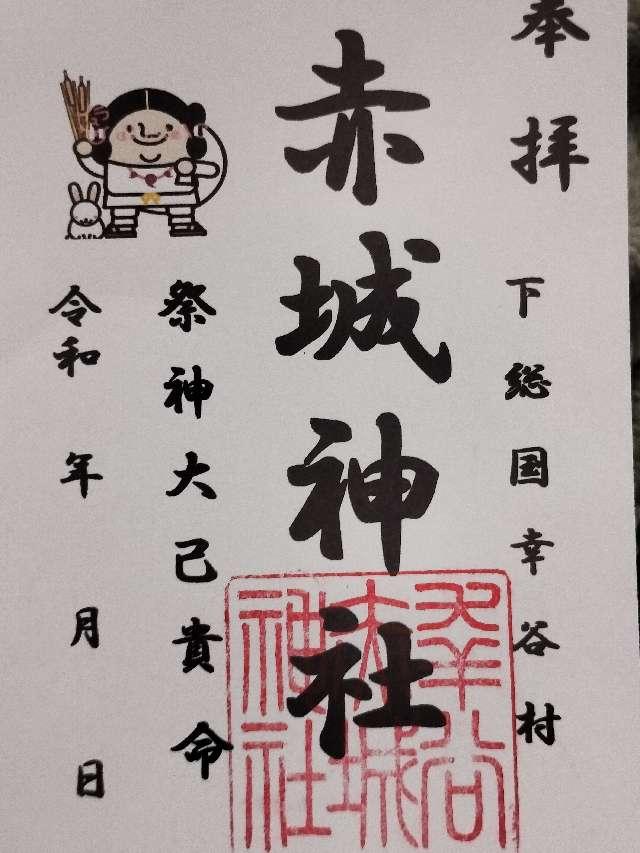 奉拝
下総国幸谷村
赤城神社
祭神大己貴命
令和 年 月 日
幸谷
赤城
神社